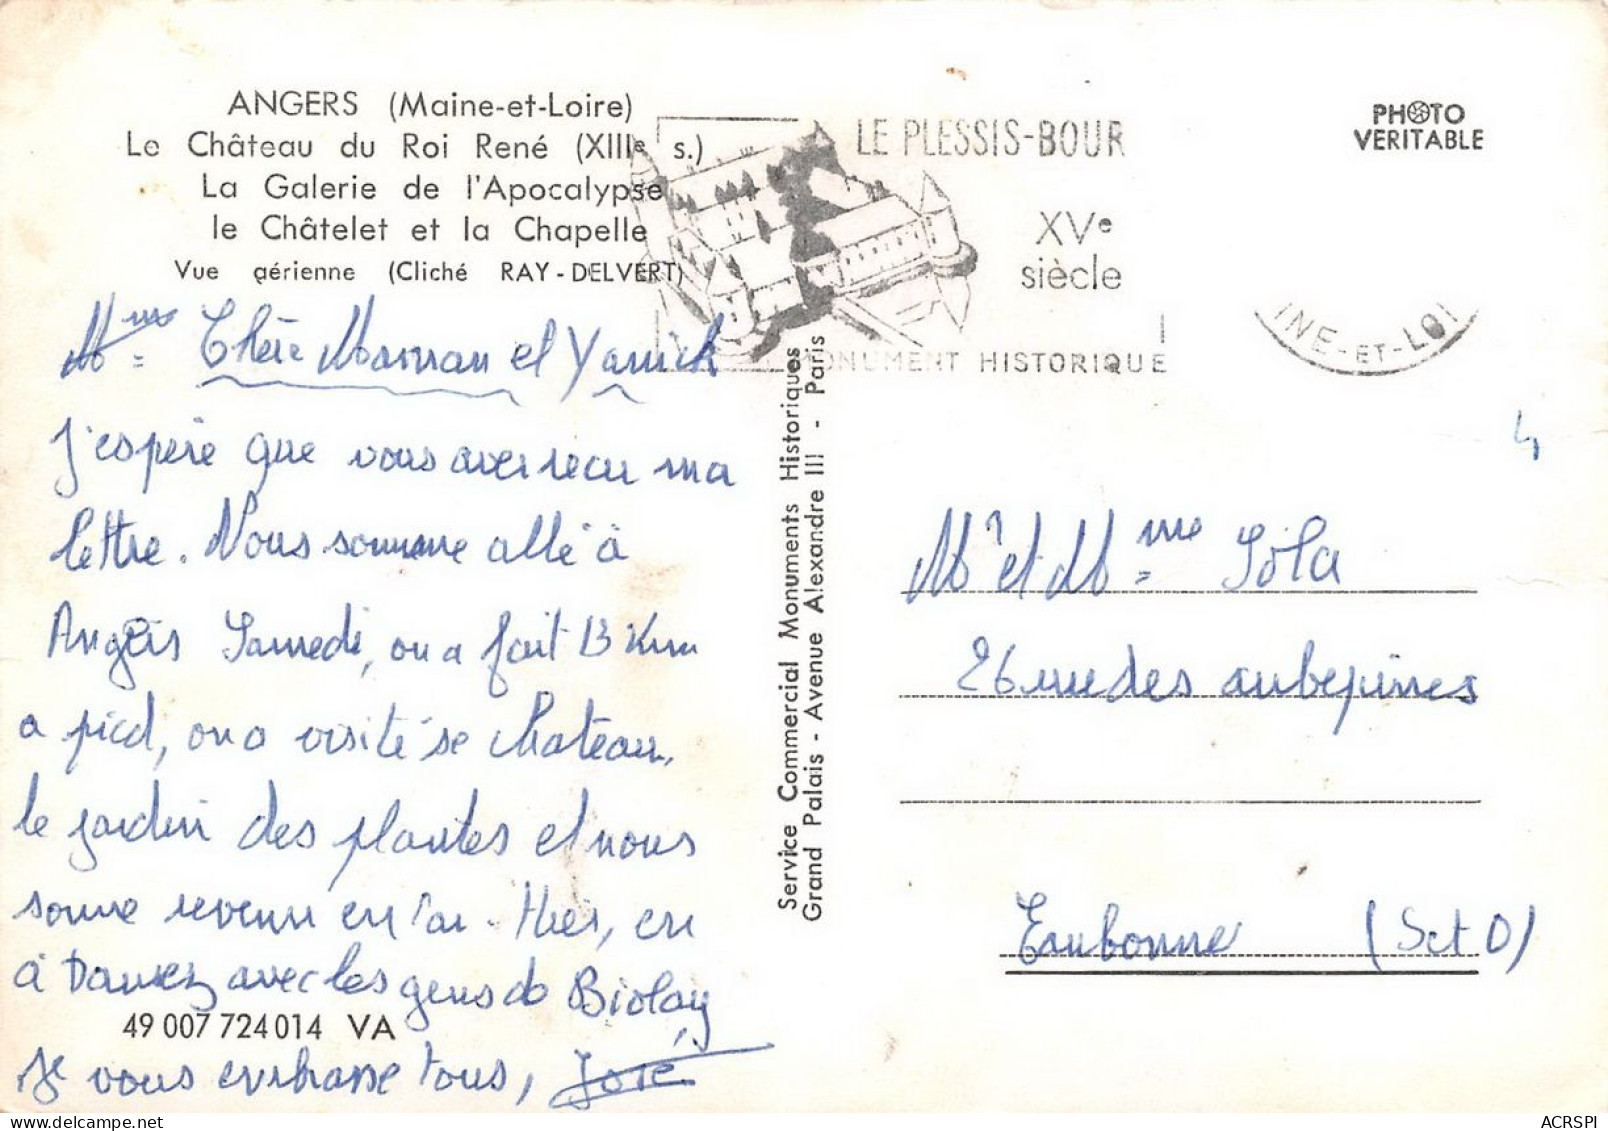 ANGERS (Maine-et-Loire)
Le Château du Roi René (XIIIe s.)
La Galerie de l'Apocalypse
le Châtelet et la Chapelle
Vue aérienne (Cliché RAY-DELVERT)
LE PLESSIS-BOUR
XVe
siècle
MONUMENT HISTORIQUE
PHOTO
VERITABLE
INE-ET-LOI
Mme Chère Maman et Yanick
J'espère que vous avez recu ma
lettre. Nous somme allé à
Angers Samedi, on a fait 13 Km
a pied, on a visité se chateau,
le jardin des plantes et nous
somme revenu en car. Hier, on
à Danser avec les gens de Biolay
49 007 724 014 VA
Je vous embrasse tous, José
Service Commercial Monuments Historiques
Grand Palais - Avenue Alexandre III - Paris
4
Mr et Mme Sola
26 rue des aubepines
Eaubonne (Set O)
ACRSPI